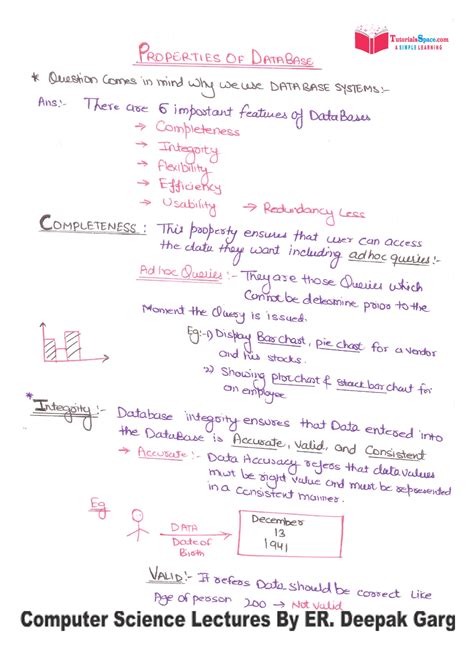 TutorialsSpace.com
A SIMPLE LEARNING
PROPERTIES OF DATABASE
* Question comes in mind why we use DATABASE SYSTEMS:-
Ans:- There are 6 important features of DataBases
→ Completeness
→ Integrity
→ flexibility
→ Efficiency
→ Usability → Redundancy Less
COMPLETENESS: This property ensures that user can access
the data they want including ad hoc queries:-
Ad hoc Queries:- They are those Queries which
Cannot be determine prior to the
Moment the Query is issued.
Eg:-1) Display Bar chart, pie chart for a vendor
and his stocks.
2) Showing plot chart & stack bar chart for
an employee
* Integrity:- Database integrity ensures that Data entered into
the DataBase is Accurate, Valid, and Consistent
→ Accurate:- Data Accuracy refers that data values
must be right value and must be represented
in a consistent manner.
Eg
DATA
Date of
Birth
December
13
1941
VALID:- It refers Data should be correct like
Age of person 200 → Not valid
Computer Science Lectures By ER. Deepak Garg